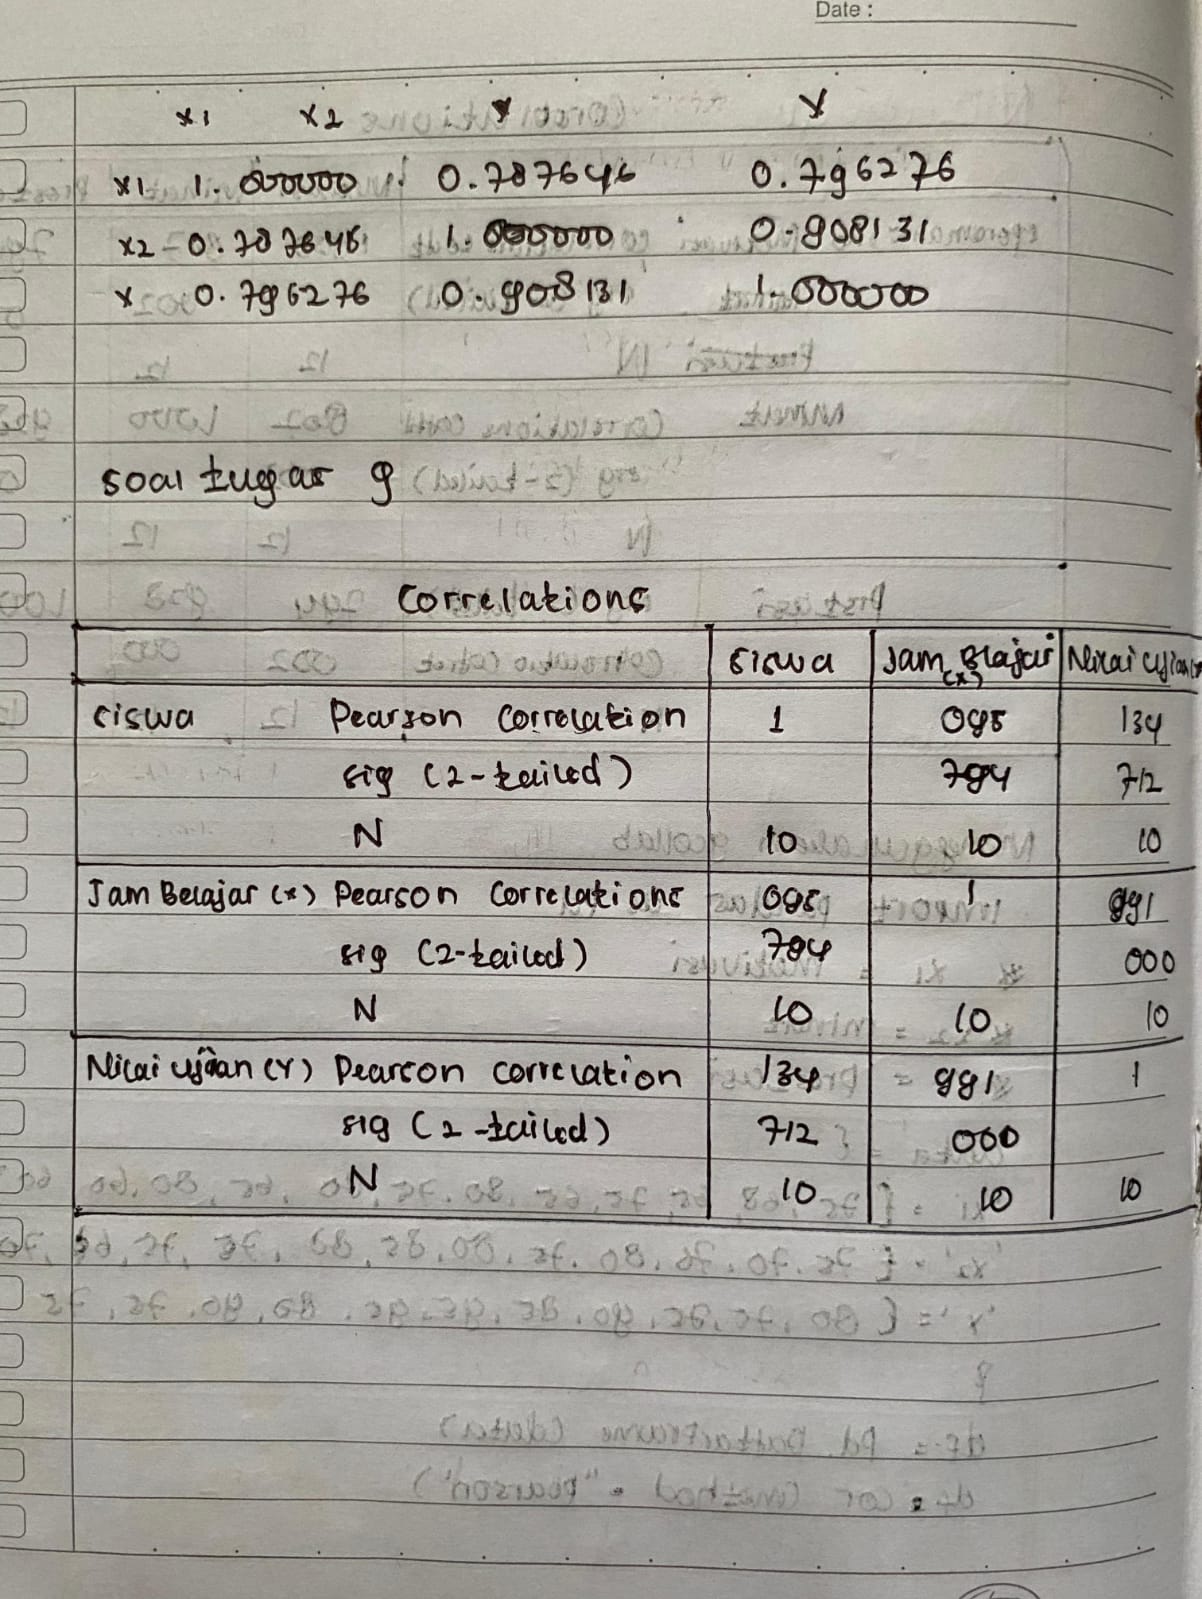 Date :
x1 x2 Y
x1 1.000000 0.787646 0.796276
x2 0.787646 1.000000 0.908131
Y 0.796276 0.908131 1.000000
soal tugas 9
Correlations
siswa Jam Blajar (x) Nilai Ujian
siswa Pearson Correlation 1 095 134
sig (2-tailed) 794 712
N 10 10 10
Jam Belajar (x) Pearson Correlations 095 1 991
sig (2-tailed) 794 000
N 10 10 10
Nilai ujian (Y) Pearson correlation 134 991 1
sig (2-tailed) 712 000
N 10 10 10